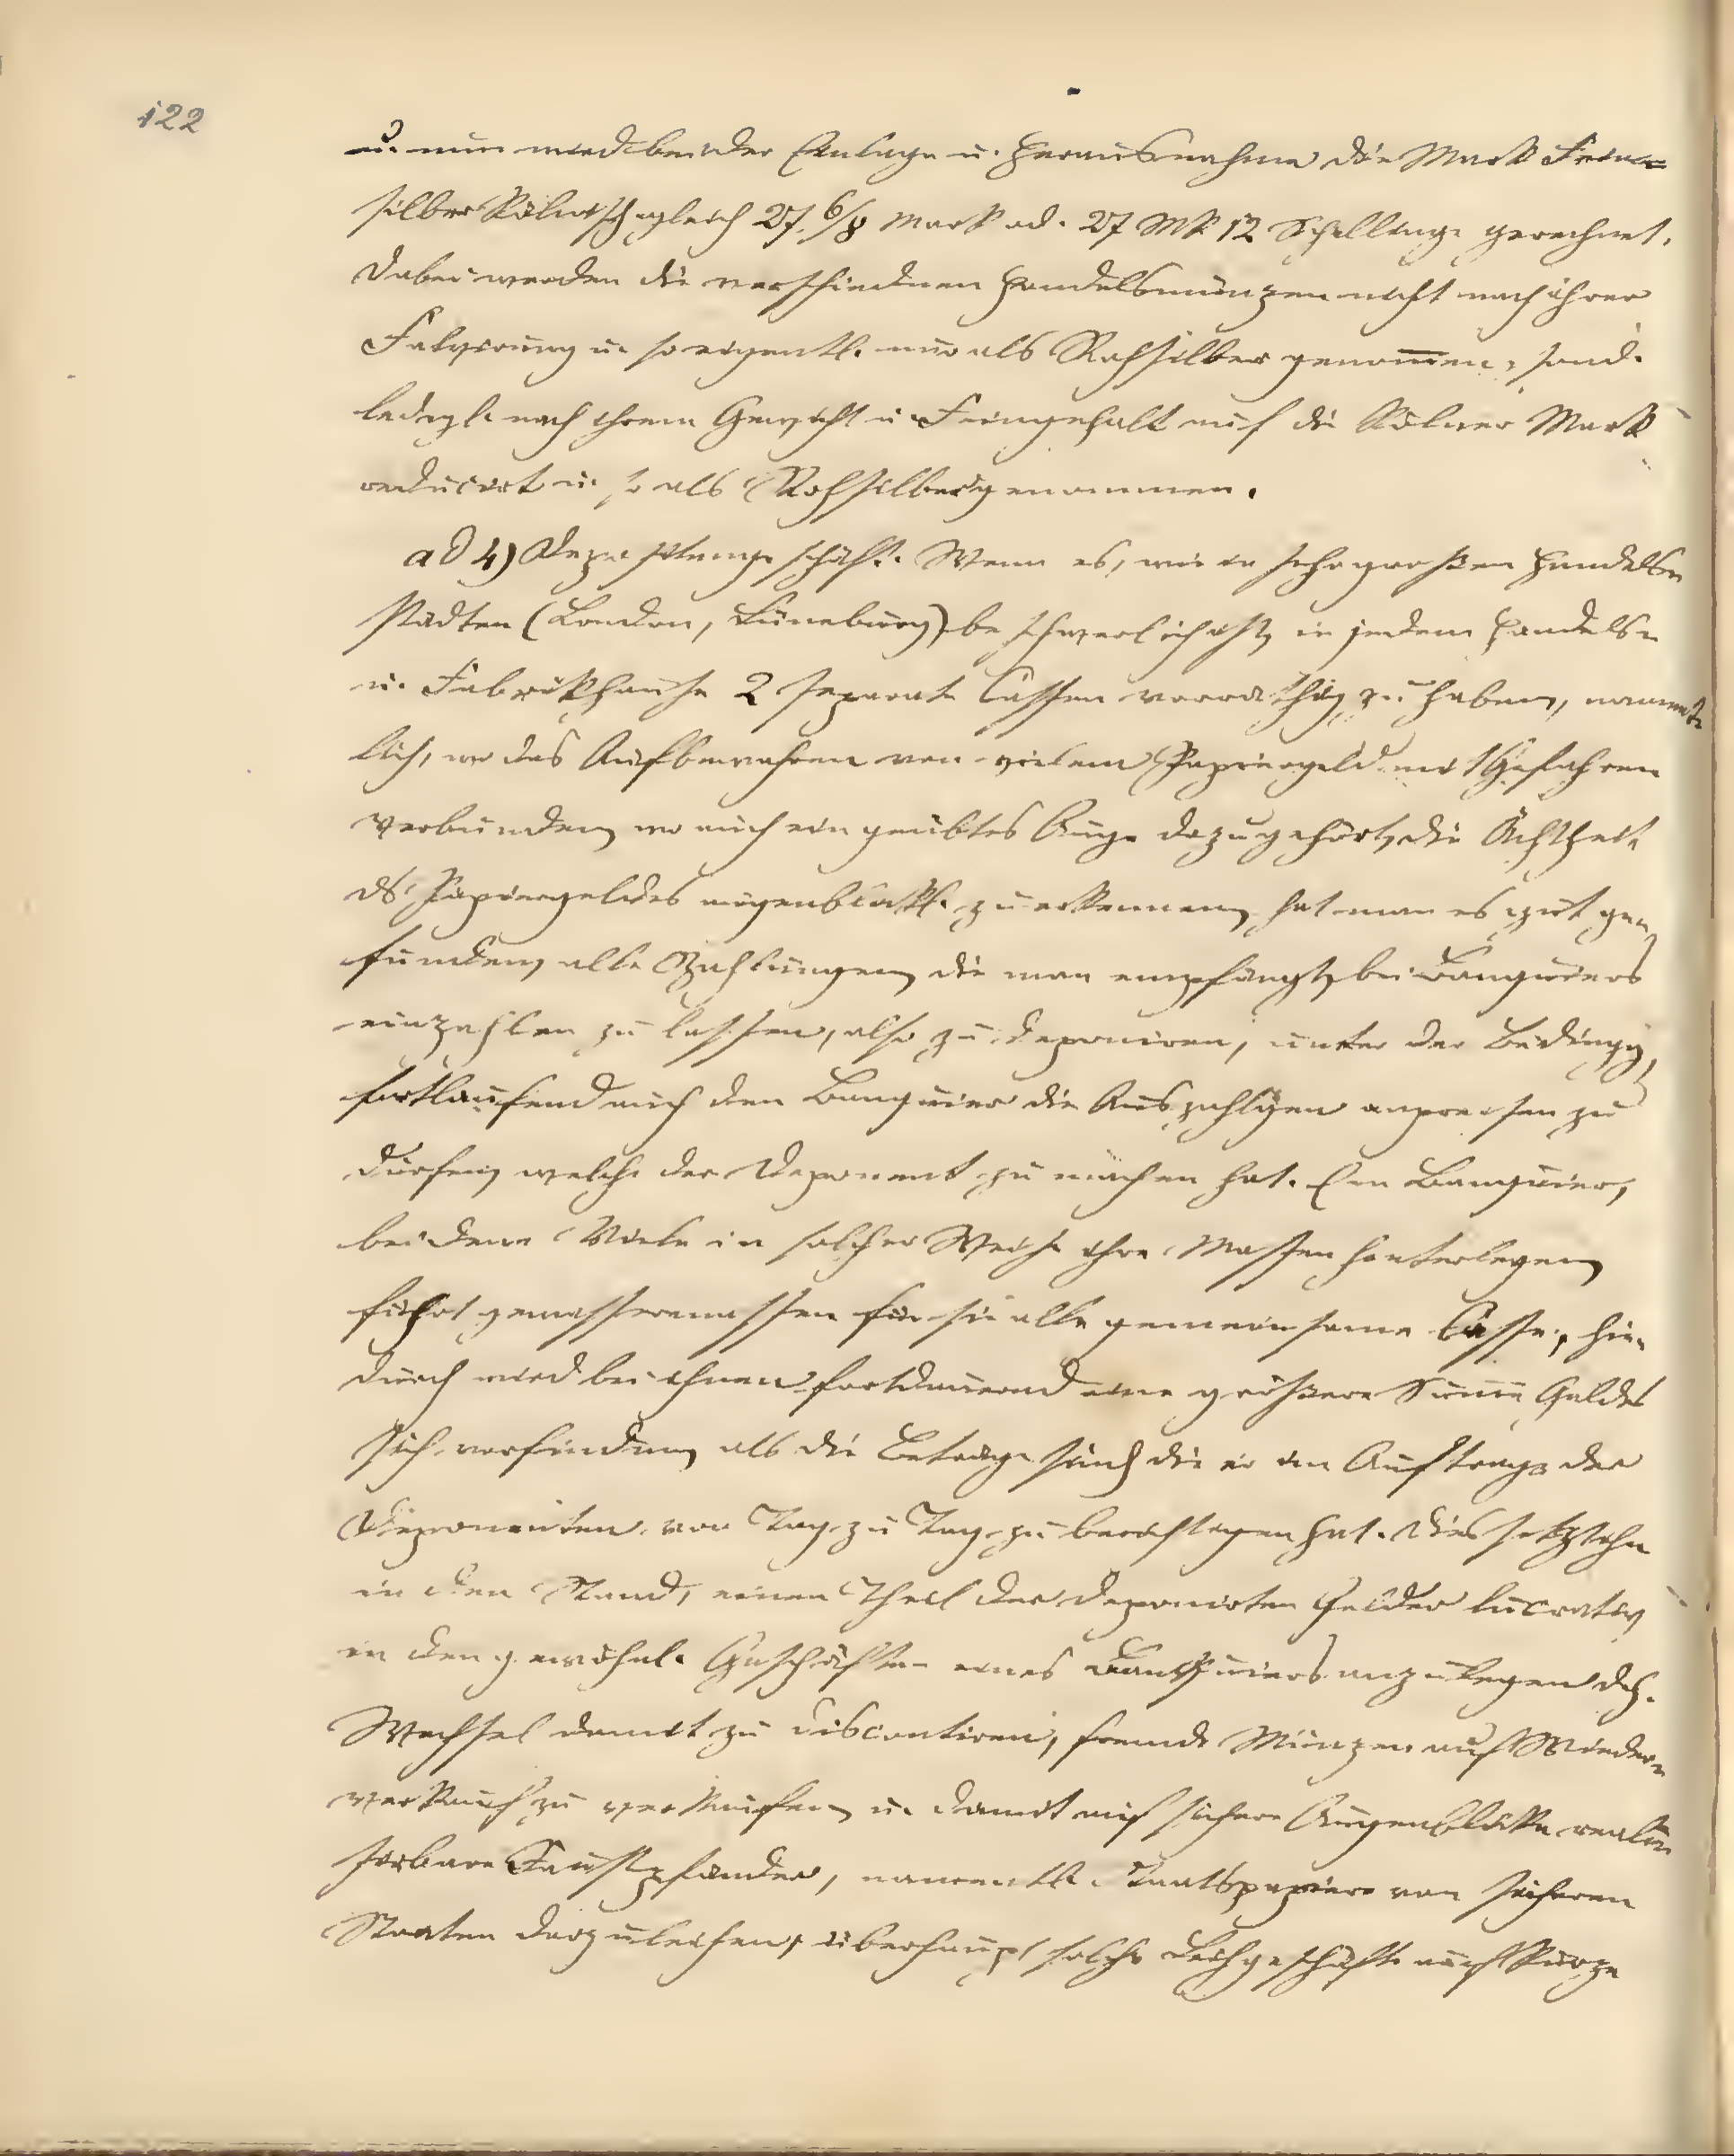 122
u. nun wird bei der Einlage u. Herausnahme die Mark Fein=
silber Kölnisch gleich 27 6/8 Mark od. 27 Mk 12 Schillinge gerechnet.
Dabei werden die verschiedenen Handelsmünzen nicht nach ihrer
u. so eigentl. nur als Rohsilber genommen, sond.
ledigl. nach ihrem Gewicht u. Feingehalt auf die Kölner Mark
reducirt u. so als Rohsilber genommen.
ad 4) Depositengeschäft. Wenn es, wie in sehr großen Handels=
städten (London, ) beschwerlich ist, in jedem Handels=
u. Fabrikhause 2 separate Cassen vorräthig zu haben, nament=
lich, wo das Aufbewahren von vielem Papiergeld mit Gefahren
verbunden, wo auch ein geübtes Auge dazu gehört, die Ächtheit
ds Papiergeldes augenblickl. zu erkennen, hat man es gut ge=
funden, alle Zahlungen, die man empfängt, bei Banquiers
einzahlen zu lassen, also zu deponiren, unter der Bedingg,
fortlaufend auch den Banquier die Auszahlgen anweisen zu
dürfen, welche der Deponent zu machen hat. Ein Banquier,
bei dem Viele in solcher Weise ihre Massen hinterlegen,
führt gewissermassen für sie alle gemeinsame Casse, hie=
durch wird bei ihnen fortdauernd eine größere Summe Geldes
sich vorfinden, als die Beträge sind, die er im Auftrage der
Deponenten von Tag zu Tag zu berichtigen hat. Dies setzt ihn
in den Stand, einen Theil der deponirten Gelder lucrativ
in den gewöhnl. Geschäften eines Banquiers anzulegen, dh.
Wechsel damit zu discontiren, fremde Münzen auf Wieder=
verkauf zu verkaufen, u. damit auf sichere Augenblicke reali=
sirbare Faustpfänder, namentl. Staatspapiere von sicheren
Staaten darzuleihen, überhaupt solche Leihgeschäfte auf kurze